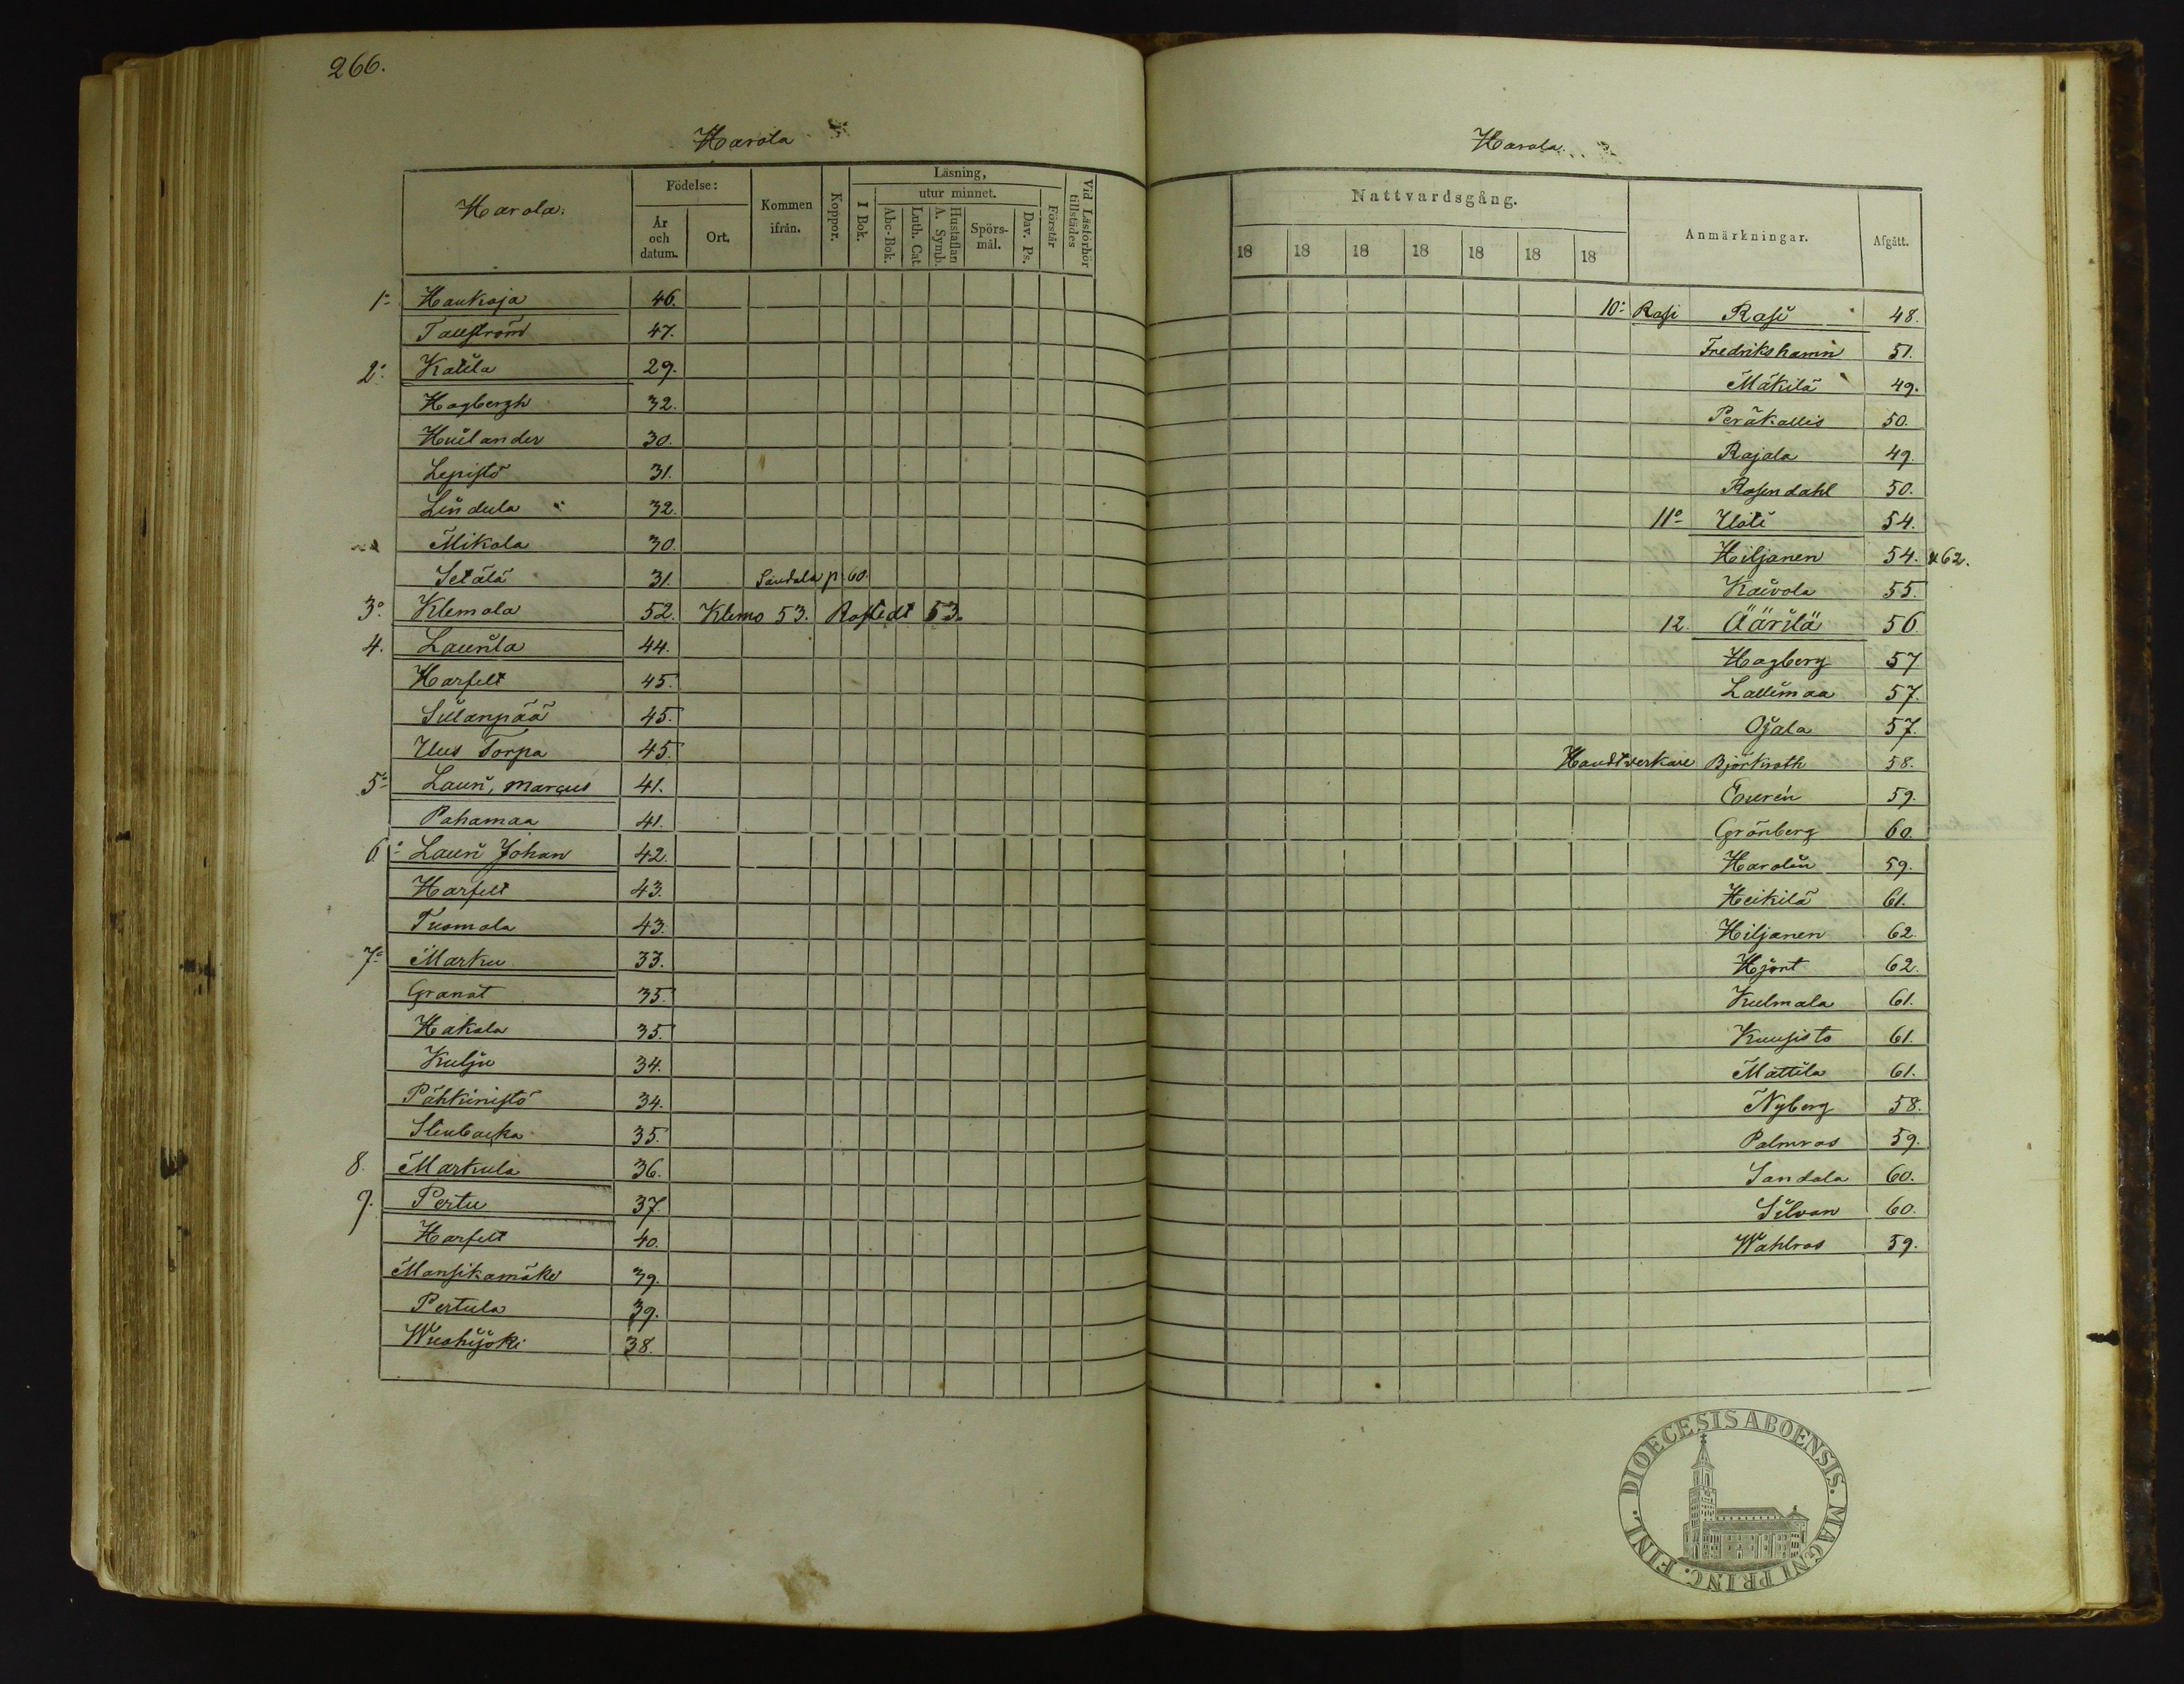 266.
Harola
Harola.
Födelse:
År och datum.
Ort.
Kommen ifrån.
Koppor.
Läsning,
I Bok.
utur minnet.
Abc-Bok.
Luth. Cat.
Hustaflan A. Symb.
Spörsmål.
Dav. Ps.
Förstår
Vid Läsförhör tillstädes
1:o Haukoja 46.
Tallström 47.
2:o Katila 29.
Hagbergh 32.
Huilander 30.
Lepistö 31.
Lindula 32.
Mikola 30.
Setälä 31. Sandala p. 60.
3:o Klemola 52. Klemo 53. Rostedt 53.
4. Laurila 44.
Harfelt 45.
Sillanpää 45.
Uus Torpa 45.
5:o Lauri, Marcus 41.
Pahamaa 41.
6:o Lauri Johan 42.
Harfelt 43.
Tuomola 43.
7:o Marku 33.
Granat 35.
Hakala 35.
Kulju 34.
Pähkinistö 34.
Stenbacka 35.
8. Markula 36.
9. Pertu 37.
Harfelt 40.
Mansikamäki 39.
Pertula 39.
Wuohijoki 38.
Harola
Nattvardsgång.
18 18 18 18 18 18 18
Anmärkningar.
Afgått.
10:o Rasi Rasi 48.
Fredrikshamn 51.
Mäkilä 49.
Peräkallis 50.
Rajala 49.
Rosendahl 50.
11:o Uoti 54.
Hiljanen 54. & 62.
Kaivola 55.
12. Äärilä 56.
Hagberg 57
Lallimaa 57.
Ojala 57.
Handtverkare Björkroth 58.
Enerén 59.
Grönberg 60.
Harolin 59.
Heikilä 61.
Hiljanen 62.
Hjort 62.
Kulmala 61.
Kuusisto 61.
Mattila 61.
Nyberg 58.
Palmros 59.
Sandala 60.
Silvan 60.
Wahlros 59.
DIOECESIS ABOENSIS. MAGNI PRINC. FINL.